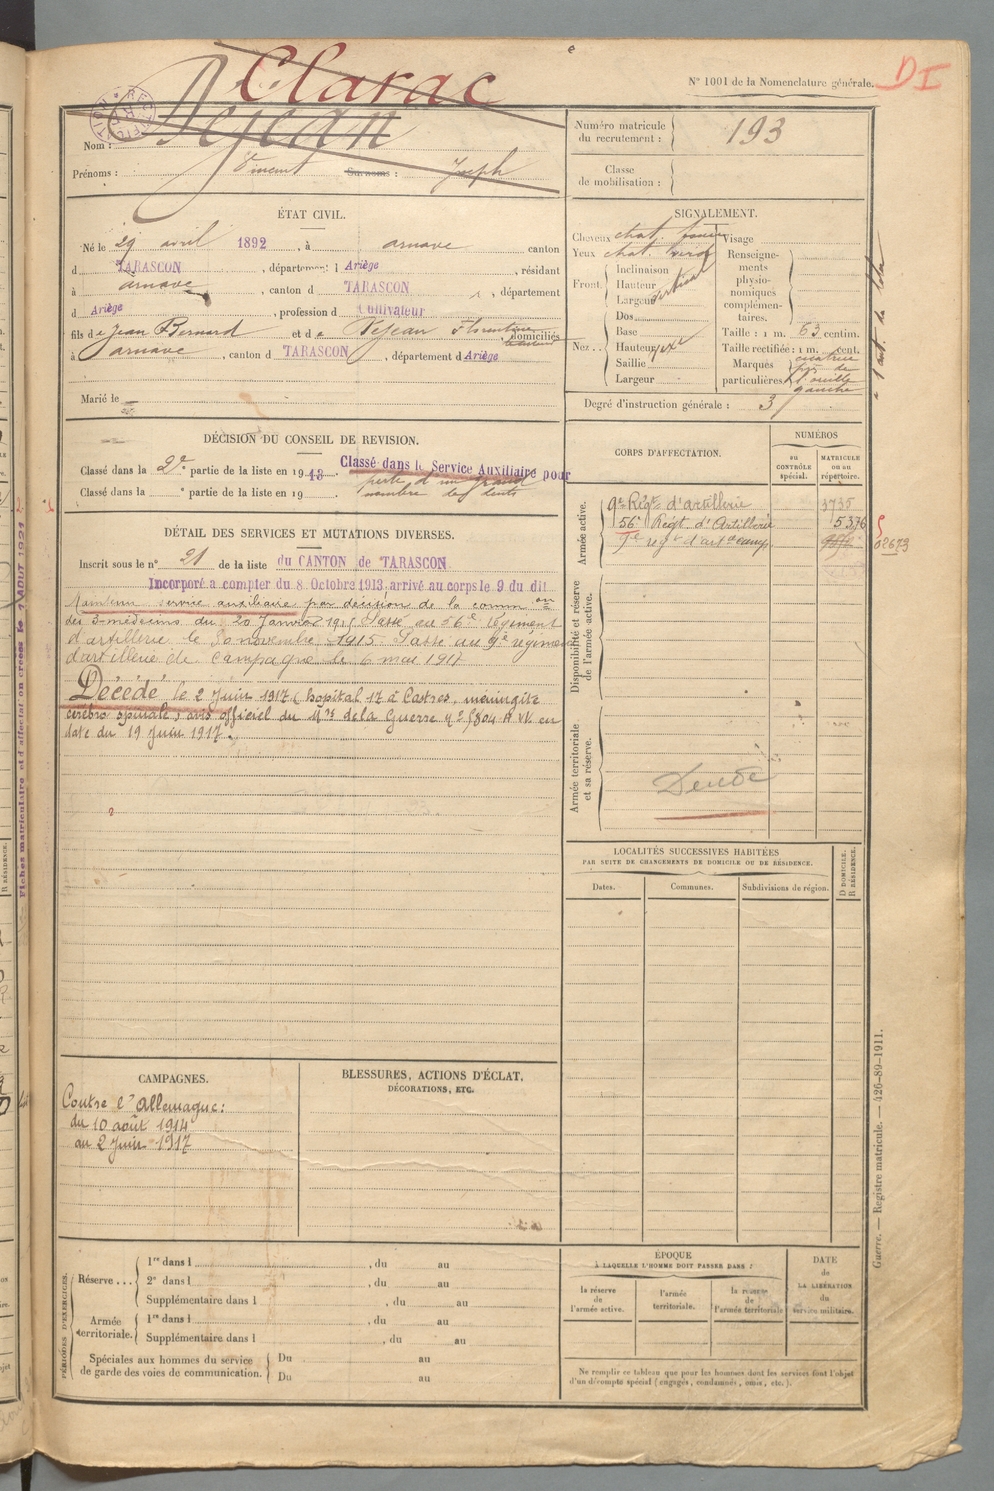 N° 1001 de la Nomenclature générale.
DI
Clarac
RECTIFICATION
Nom : Dejean
Prénoms : Vincent Surnoms : Joseph
Numéro matricule du recrutement : 193
Classe de mobilisation :
ÉTAT CIVIL.
Né le 29 avril 1892, à arnave canton
d TARASCON, département d Ariège, résidant
à arnave, canton d TARASCON, département
d Ariège, profession d Cultivateur
fils de Jean Bernard et de Dejean Florentine, domiciliés
à arnave, canton d TARASCON, département d Ariège
Marié le
SIGNALEMENT.
Cheveux chat. foncé
Yeux chat.
Front.
Inclinaison
Hauteur
Largeur
vertical
Dos
Nez..
Base
Hauteur
Saillie
Largeur
Visage
Renseignements physionomiques complémentaires.
Taille : 1 m. 63 centim.
Taille rectifiée : 1 m. cent.
Marques particulières cicatrice près de l'oreille gauche
Degré d'instruction générale : 3
DÉCISION DU CONSEIL DE REVISION.
Classé dans la 2e partie de la liste en 1913. Classé dans le Service Auxiliaire pour
perte d'un grand
nombre de dents
Classé dans la e partie de la liste en 19
DÉTAIL DES SERVICES ET MUTATIONS DIVERSES.
Inscrit sous le n° 21 de la liste du CANTON de TARASCON
Incorporé à compter du 8 Octobre 1913, arrivé au corps le 9 du dit
Maintenu service auxiliaire par décision de la comm on
des 3 médecins du 20 Janvier 1915 Passé au 56e régiment
d'artillerie le 30 novembre 1915. Passé au 9e régiment
d'artillerie de campagne le 6 mai 1917
Décédé le 2 Juin 1917 (hopital 17 à Castres, méningite
cérébro spinale) avis officiel du Mre de la Guerre en
date du 19 Juin 1917.
CORPS D'AFFECTATION.
NUMÉROS
au CONTRÔLE spécial.
MATRICULE ou au répertoire.
Armée active.
9e Régt d'Artillerie 3735
56e Régt d'Artillerie 5376
9e regt d'art campe
Disponibilité et réserve de l'armée active.
Armée territoriale et sa réserve.
Décédé
LOCALITÉS SUCCESSIVES HABITÉES
PAR SUITE DE CHANGEMENTS DE DOMICILE OU DE RÉSIDENCE.
Dates.
Communes.
Subdivisions de région.
D DOMICILE.
R RÉSIDENCE.
CAMPAGNES.
Contre l'allemagne :
du 10 août 1914
au 2 Juin 1917
BLESSURES, ACTIONS D'ÉCLAT,
DÉCORATIONS, ETC.
PÉRIODES D'EXERCICES.
Réserve ...
1re dans l , du au
2e dans l , du au
Supplémentaire dans l , du au
Armée territoriale.
1re dans l , du au
Supplémentaire dans l , du au
Spéciales aux hommes du service de garde des voies de communication.
Du au
Du au
ÉPOQUE
À LAQUELLE L'HOMME DOIT PASSER DANS :
la réserve de l'armée active.
l'armée territoriale.
la réserve de l'armée territoriale
DATE de LA LIBÉRATION du service militaire.
Ne remplir ce tableau que pour les hommes dont les services font l'objet
d'un décompte spécial (engagés, condamnés, omis, etc.).
Guerre. — Registre matricule. — 426-89-1911.
Fiches matriculaire et d'affectation créées le 1 AOUT 1921